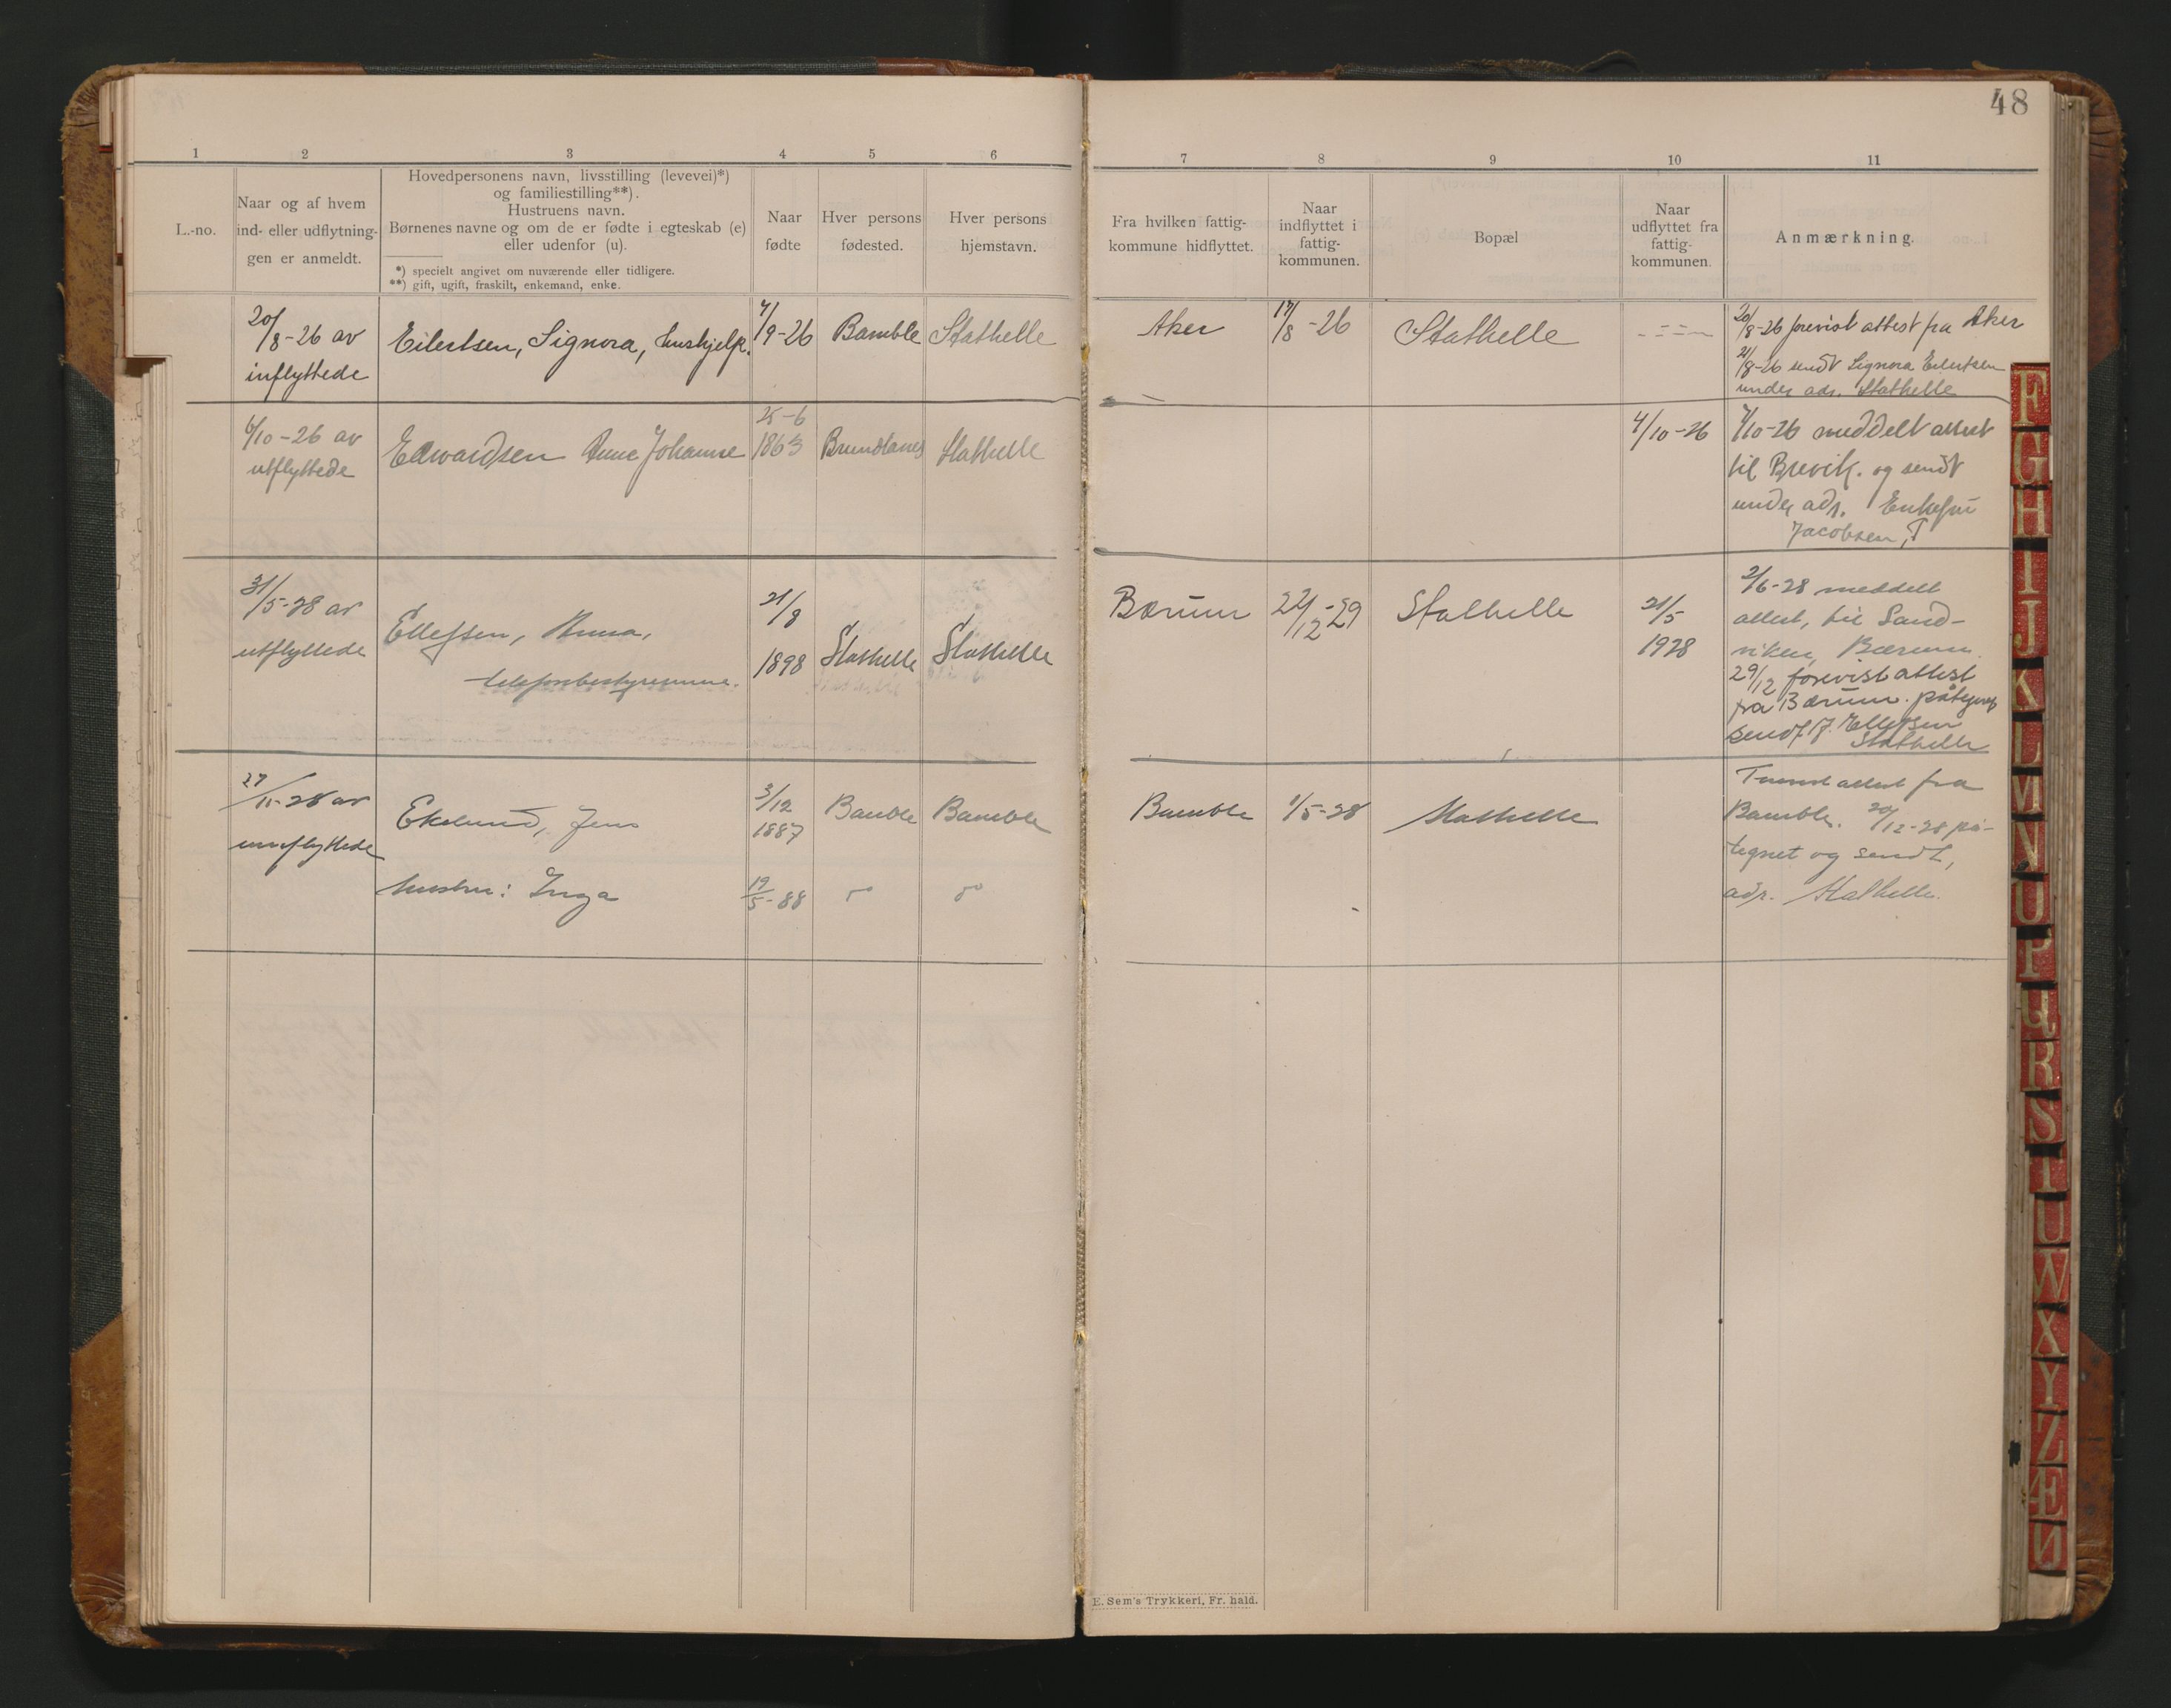 48
1 2 3 4 5 6 7 8 9 10 11
L.-no.
Naar og af hvem
ind- eller udflytnin-
gen er anmeldt.
Hovedpersonens navn, livsstilling (levevei)*)
og familiestilling**).
Hustruens navn.
Børnenes navne og om de er fødte i egteskab (e)
eller udenfor (u).
*) specielt angivet om nuværende eller tidligere.
**) gift, ugift, fraskilt, enkemand, enke.
Naar
fødte
Hver persons
fødested.
Hver persons
hjemstavn.
Fra hvilken fattig-
kommune hidflyttet.
Naar
indflyttet i
fattig-
kommunen.
Bopæl
Naar
udflyttet fra
fattig-
kommunen.
Anmærkning.
20/8-26 av
inflyttede
Eilertsen, Signora, hushjelp.
7/9-26
Bamble
Stathelle
Aker
17/8-26
Stathelle
20/8-26 forevist attest fra Aker
21/8-26 sendt Signora Eilertsen
under adr. Stathelle
6/10-26 av
utflyttede
Edwardsen Anne Johanne
25-6
1863
Brunlanes
Stathelle
4/10-26
7/10-26 meddelt attest
til Brevik. og sendt
under adr. Enkefru
Jacobsen, T
31/5-28 av
utflyttede
Ellefsen, Anna,
telefonbestyrerinne.
21/8
1898
Stathelle
Stathelle
Bærum
22/12-29
Stathelle
21/5
1928
2/6-28 meddelt
attest, til Sand-
viken, Bærum.
29/12 forevist attest
fra Bærum. påtegnet
sendt F. Ellefsen
Stathelle
27/11-28 av
innflyttede
Ekelund, Jens
3/12
1887
Bamble
Bamble
Bamble
1/5-28
Stathelle
attest fra
Bamble. 20/12-28 på-
tegnet og sendt,
adr. Stathelle.
hustru: Inga
19/5-88
E. Sem's Trykkeri, Fr. hald.
F
G
H
I
J
K
L
M
N
O
P
Q
R
S
T
U
W
X
Y
Z
Æ
Ø